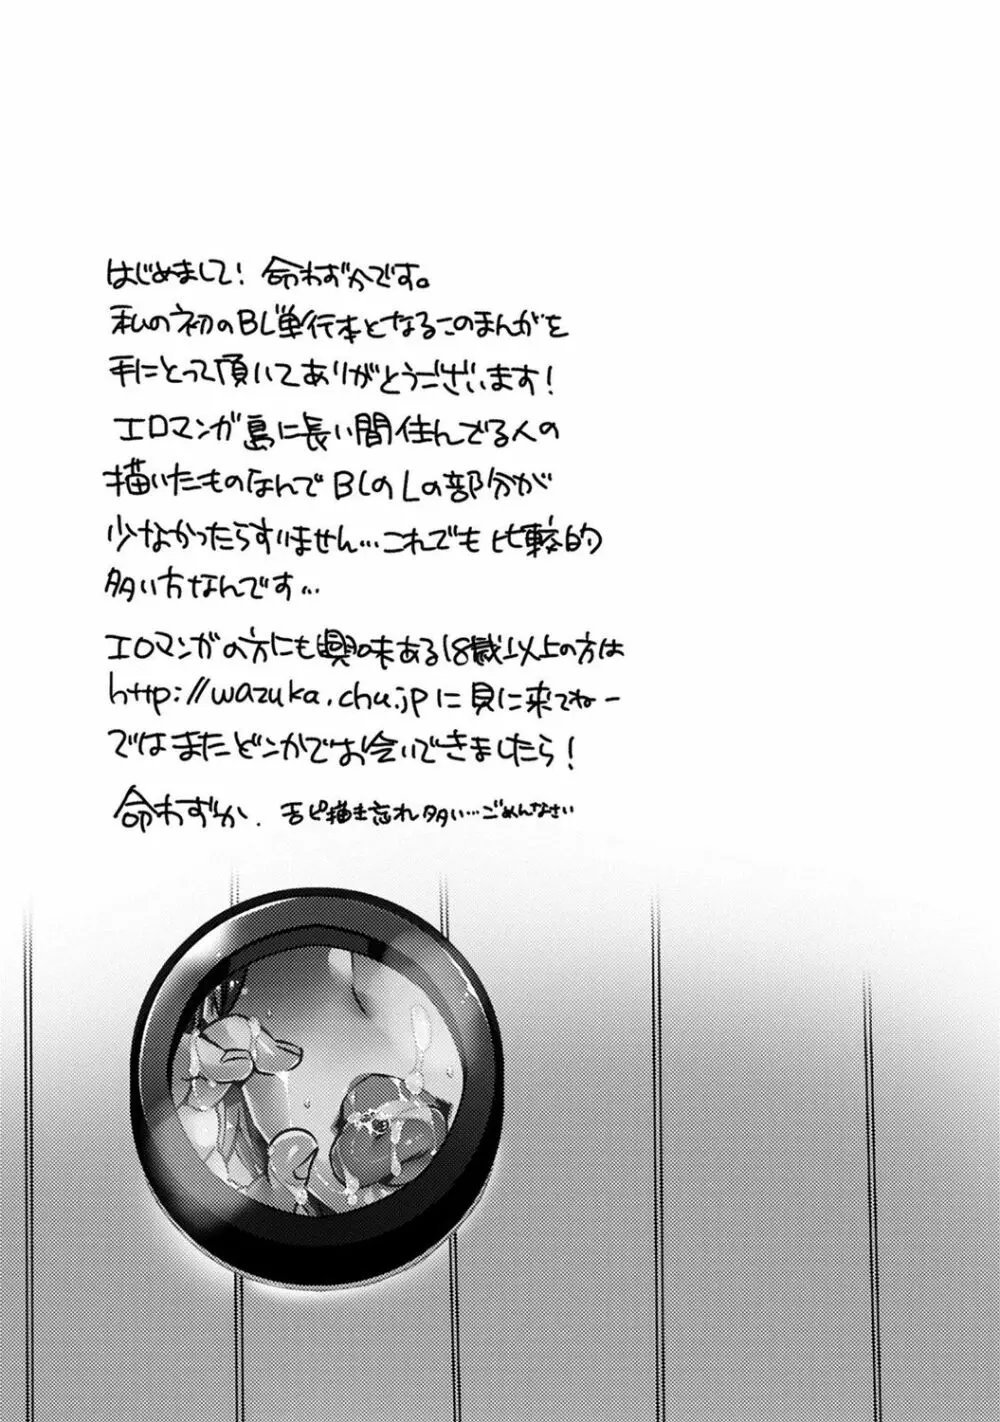 はじめまして! 命わずかです。
私の初のBL単行本となるこのまんがを
手にとって頂いてありがとうございます!
エロマンガ島に長い間住んでる人の
描いたものなんでBLのLの部分が
少なかったらすいません…これでも比較的
多い方なんです…
エロマンガの方にも興味ある18歳以上の方は
http://wazuka.chu.jpに見に来てねー
ではまたどこかでお会いできましたら!
命わずか. 舌ピ描き忘れ多い…ごめんなさい